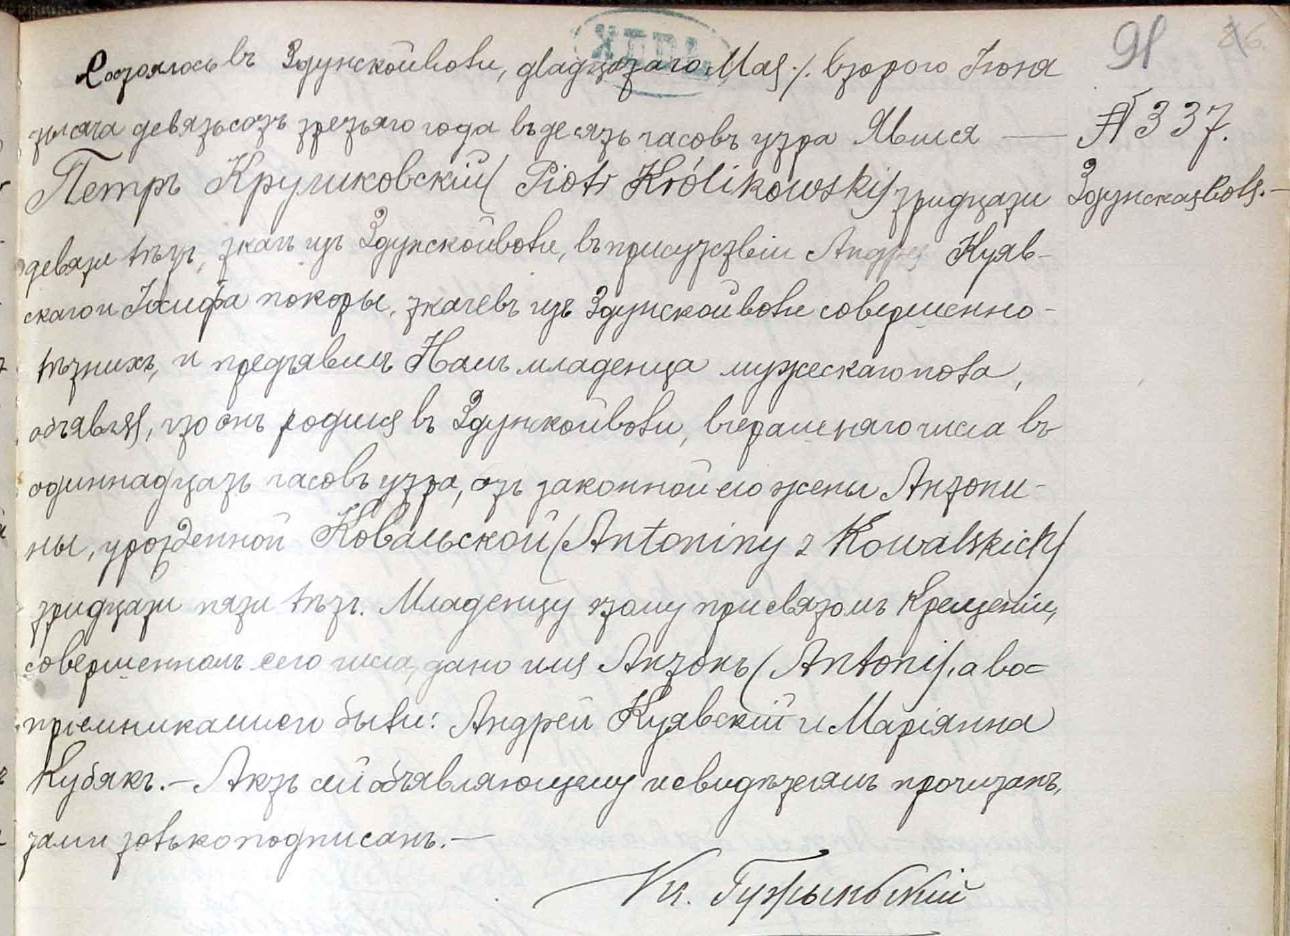 91
№ 337.
Здунская Воля.
Состоялось въ Здунской воли, двадцатаго Мая /. второго Іюня
тысяча девятьсотъ третьяго года въ десять часовъ утра. Явился —
Петръ Круликовскій (Piotr Królikowski) тридцати
девяти лѣтъ, ткачъ изъ Здунской воли, въ присутствіи Андрея Куяв-
скаго и Іосифа Покоры, ткачевъ изъ Здунской воли совершенно-
лѣтнихъ, и предъявилъ Намъ младенца мужескаго пола,
объявляя, что онъ родился въ Здунской воли, вчерашняго числа въ
одиннадцать часовъ утра, отъ законной его жены Антони-
ны, урожденной Ковальской (Antoniny z Kowalskich)
тридцати пяти лѣтъ. Младенцу этому при святомъ Крещеніи,
совершенномъ сего числа, дано имя Антонъ (Antoni), а во-
спріемниками его были: Андрей Куявскій и Маріянна
Кубякъ. — Актъ сей объявляющему и свидѣтелямъ прочитанъ,
нами только подписанъ. —